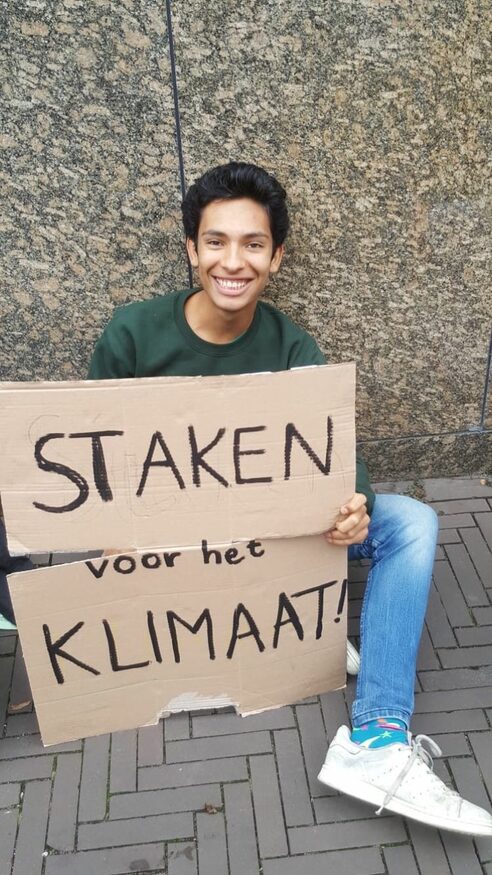 STAKEN
voor het
KLIMAAT!